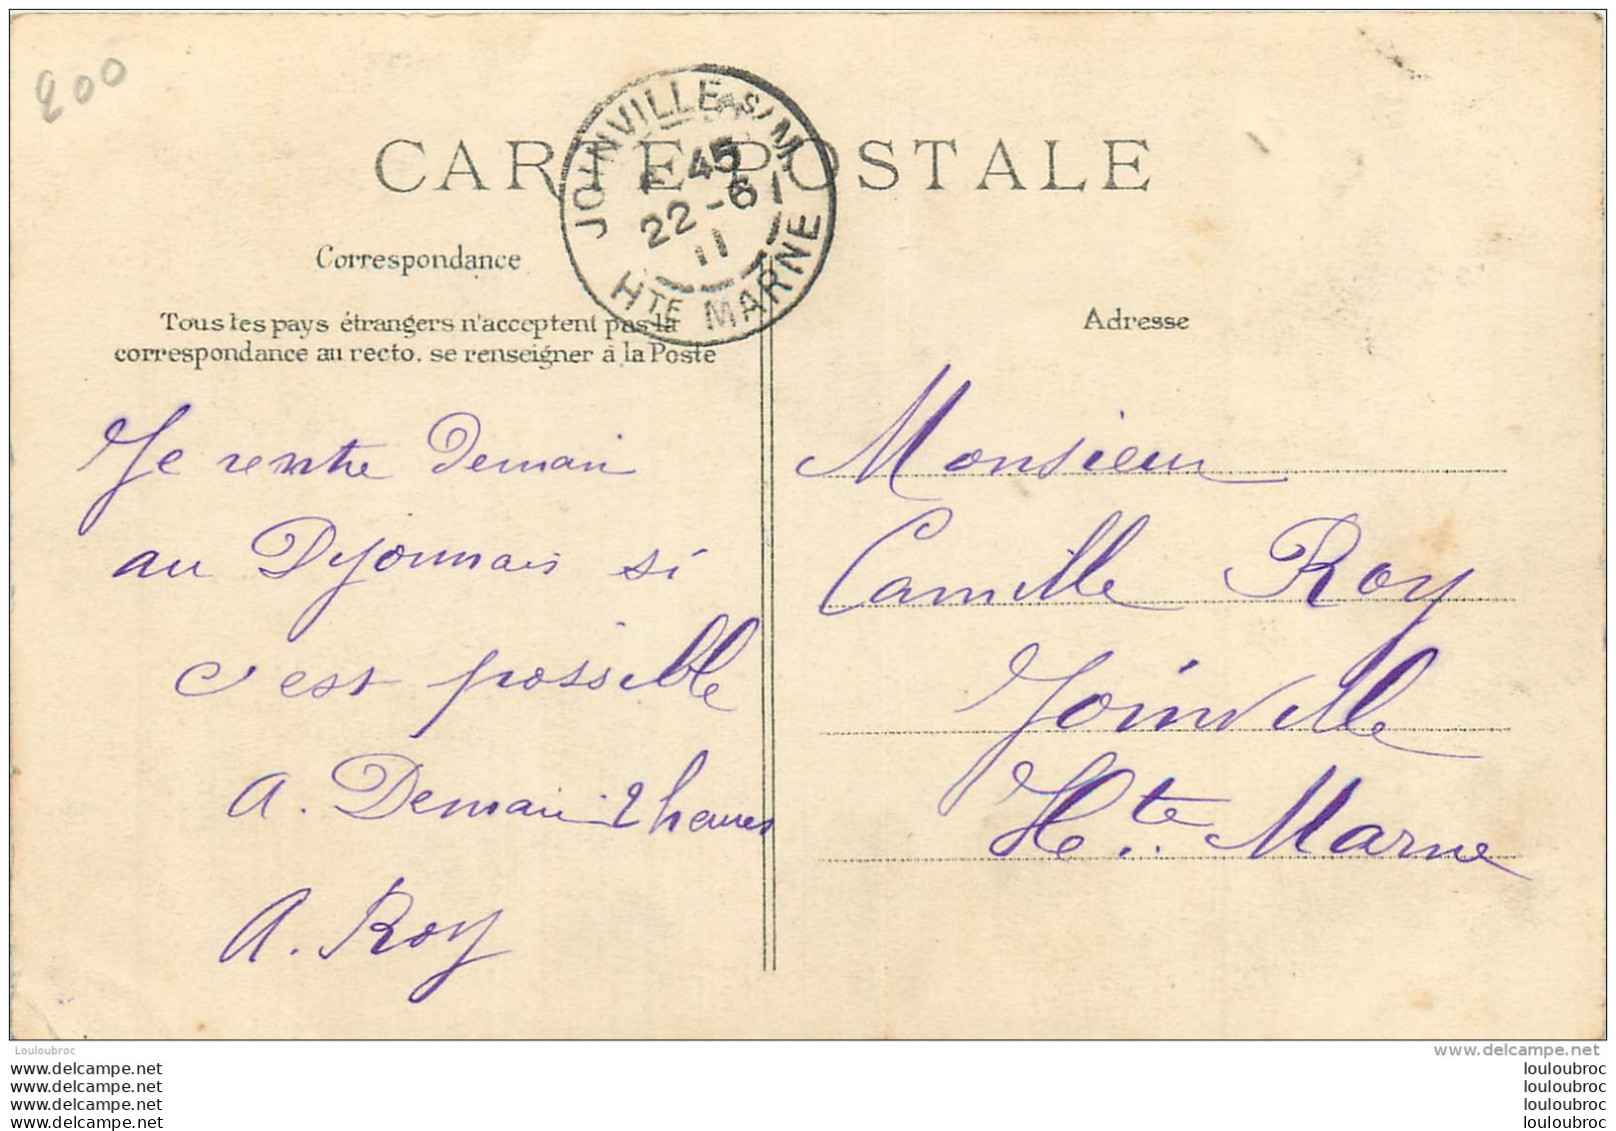 200
CARTE POSTALE
JOINVILLE S/M
45
22-6
11
HTE MARNE
Correspondance
Tous les pays étrangers n'acceptent pas la
correspondance au recto. se renseigner à la Poste
Adresse
Je rentre Demain
au Dijonnais si
c'est possible
A. Demain 2 heures
A. Roy
Monsieur
Camille Roy
Joinville
Hte Marne
Louloubroc
www.delcampe.net
louloubroc.delcampe.net
louloubroc.delcampe.net
louloubroc.delcampe.net
louloubroc.delcampe.net
louloubroc
louloubroc
louloubroc
louloubroc